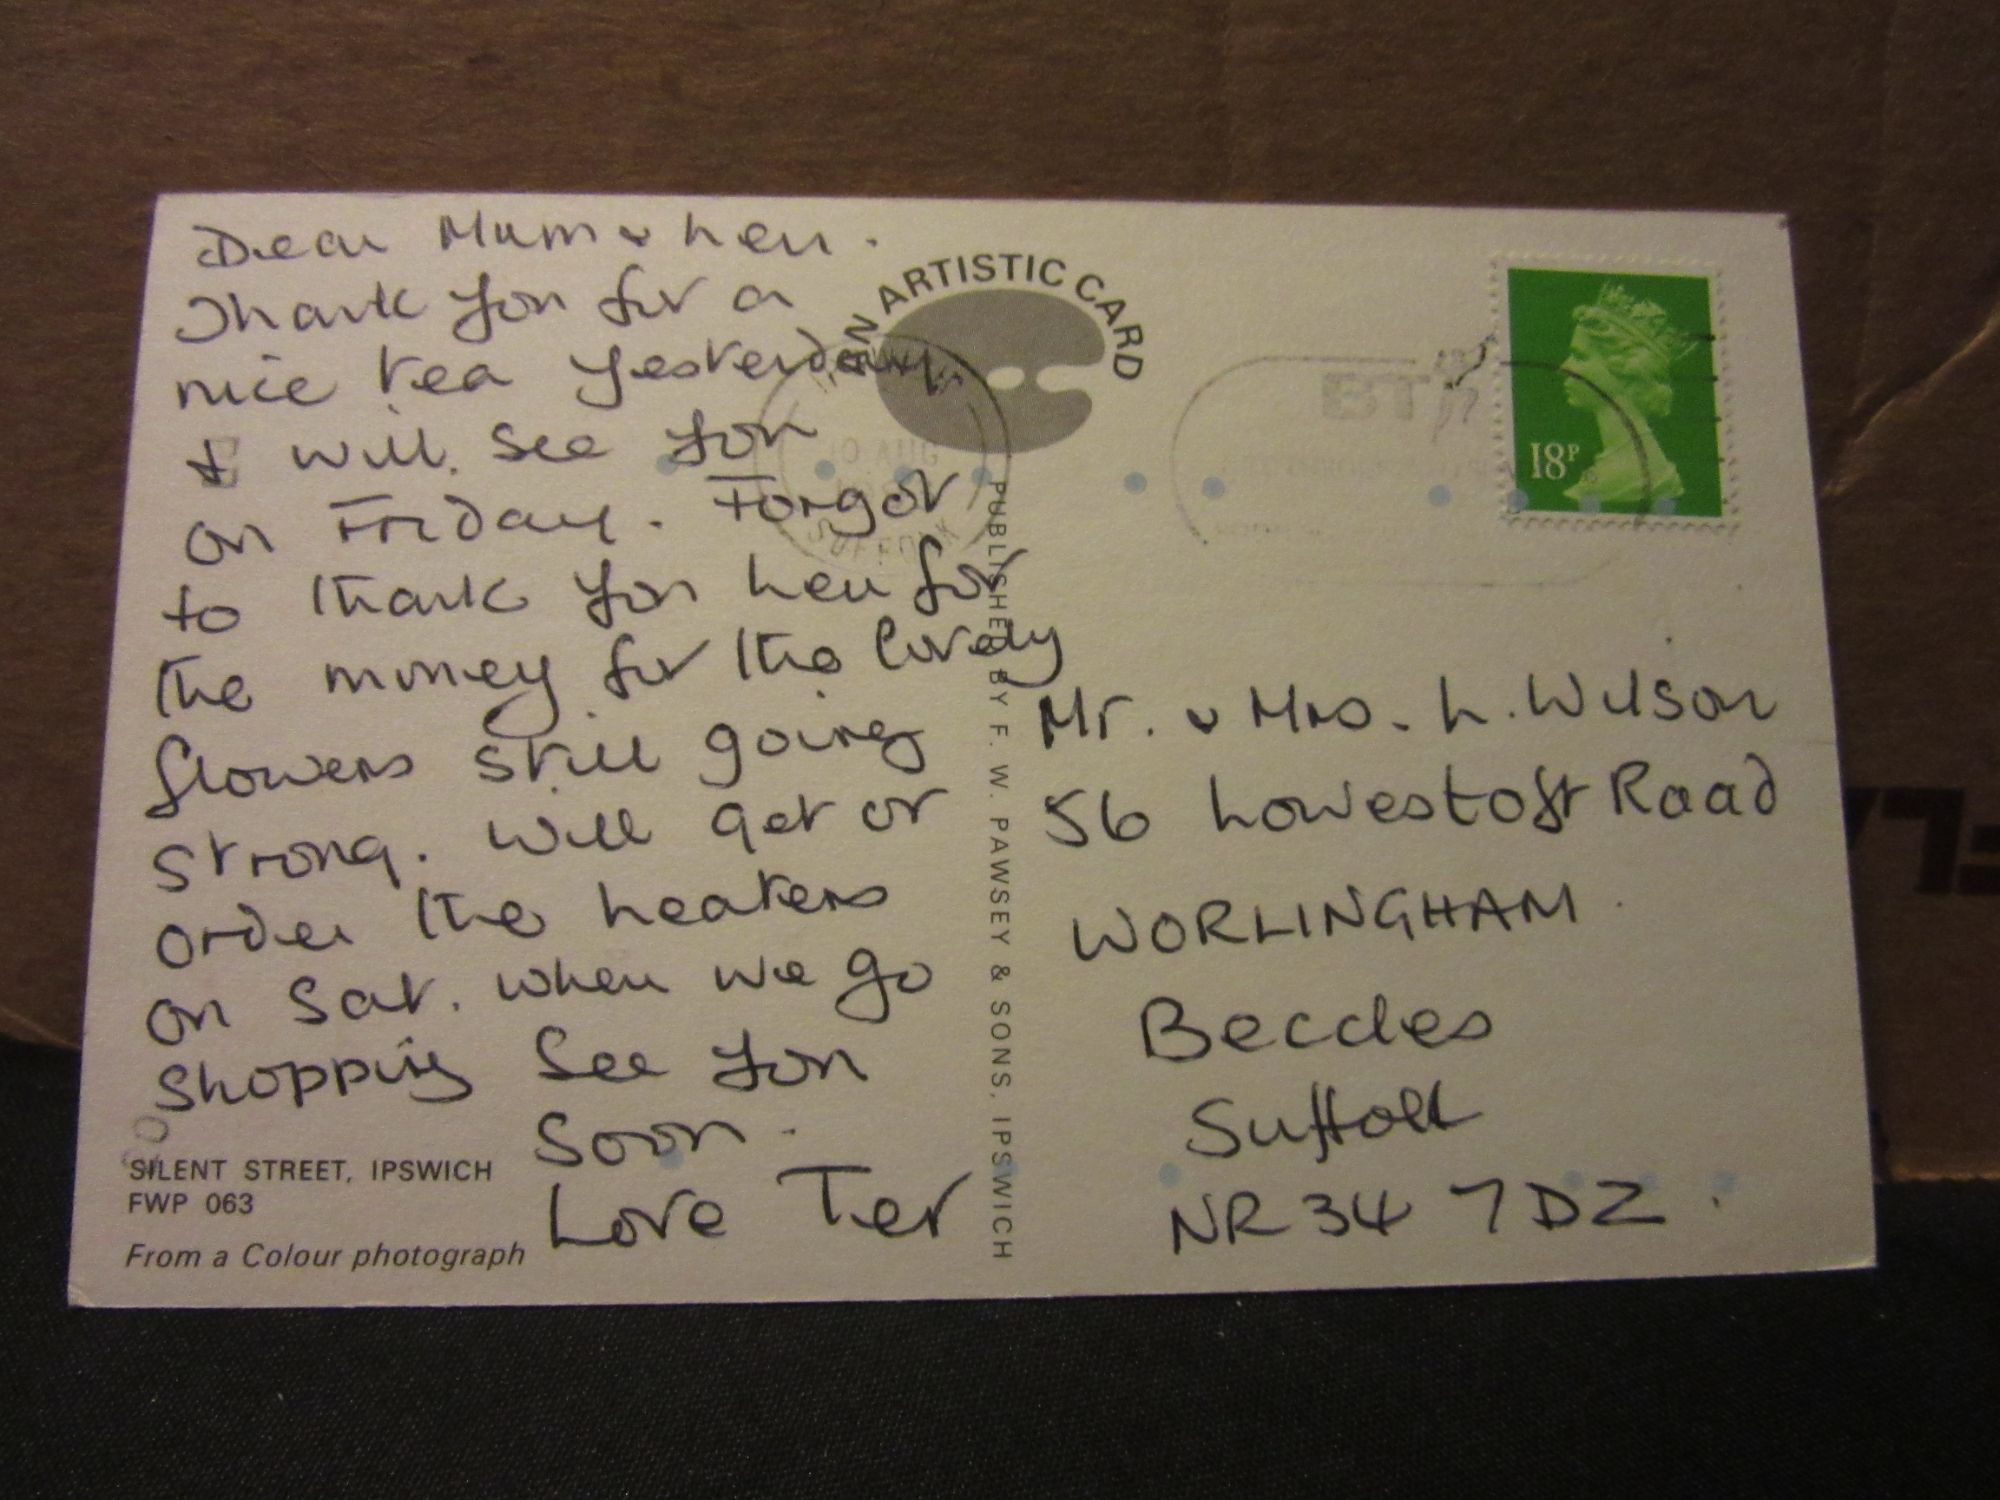 Dear Mum & Len.
Thank you for a
nice tea yesterday
& will see you
on Friday. Forgot
to thank you Len for
the money for the lovely
flowers still going
strong. Will get or
order the heaters
on Sat. when we go
shopping See you
soon.
Love Ter
SILENT STREET, IPSWICH
FWP 063
From a Colour photograph
AN ARTISTIC CARD
PUBLISHED BY F. W. PAWSEY & SONS, IPSWICH
10 AUG
SUFFOLK
BT
18P
Mr. & Mrs. L. Wilson
56 Lowestoft Road
WORLINGHAM
Beccles
Suffolk
NR34 7DZ.